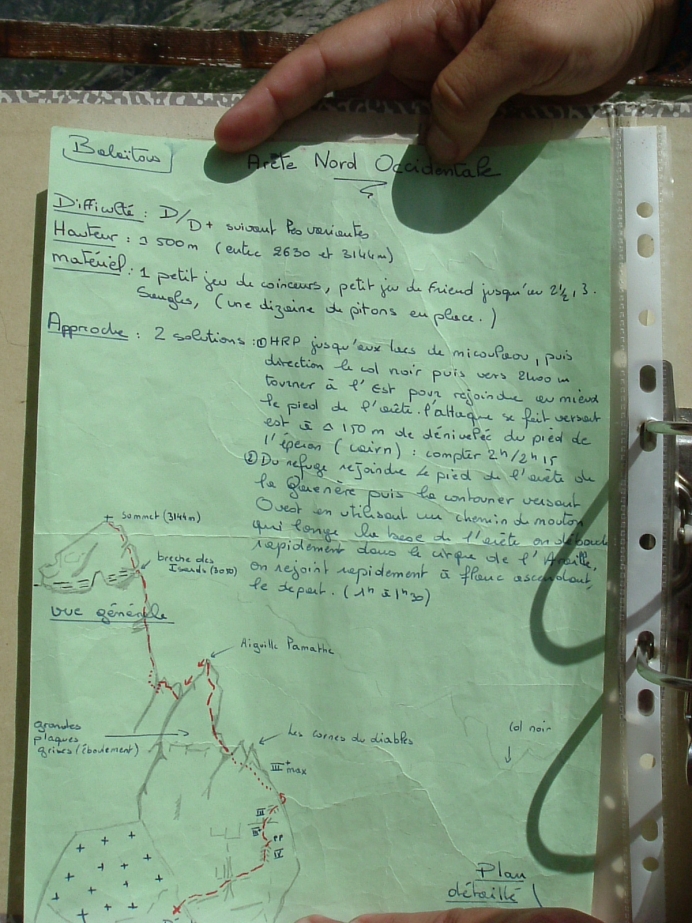 Balaitous
Arête Nord Occidentale
Difficulté : D/D+ suivant les variantes
Hauteur : 500m (entre 2630 et 3144m)
matériel : 1 petit jeu de coinceurs, petit jeu de Friend jusqu'au 2½, 3.
Sangles, (une dizaine de pitons en place.)
Approche : 2 solutions : ① HRP jusqu'aux lacs de micoulaou, puis
direction le col noir puis vers 2400 m
tourner à l'Est pour rejoindre au mieux
le pied de l'arête. l'attaque se fait versant
est à 150 m de dénivelée du pied de
l'éperon (cairn) : compter 2h/2h15
② Du refuge rejoindre le pied de l'arête de
la Garenère puis la contourner versant
Ouest en utilisant un chemin de mouton
qui longe la base de l'arête on débouche
rapidement dans le cirque de l'Araille,
on rejoint rapidement à flanc ascendant,
le départ. (1h à 1h30)
Sommet (3144m)
brèche des
Isards (3010)
vue générale
Aiguille Lamathe
grandes
plaques
grises (éboulement)
Les cornes du diables
III+ max
col noir
III
PP
IV
Plan
détaillé